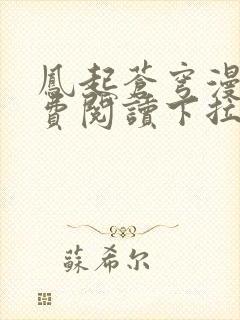 鳳起蒼穹漫
費閱讀下拉
蘇希尔